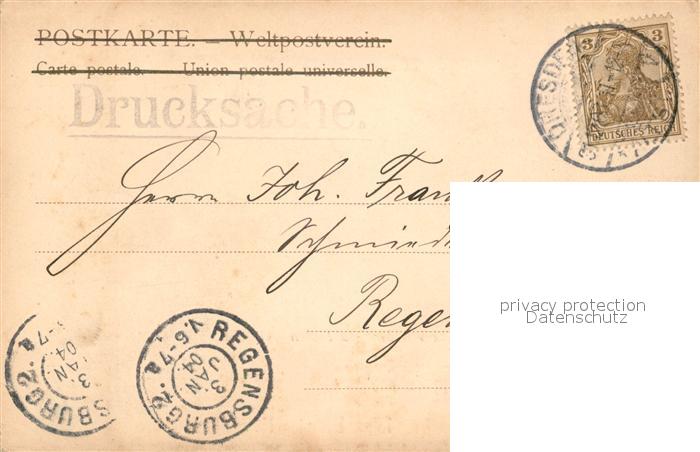 POSTKARTE. – Weltpostverein.
Carte postale. Union postale universelle.
Drucksache.
3 3
DEUTSCHES REICH
DRESDEN
Herrn Joh. Frank
Schmied
Regen
privacy protection
Datenschutz
SBURG 2. -7a
3 JAN 04
REGENSBURG 2. V.6-7a
3 JAN 04